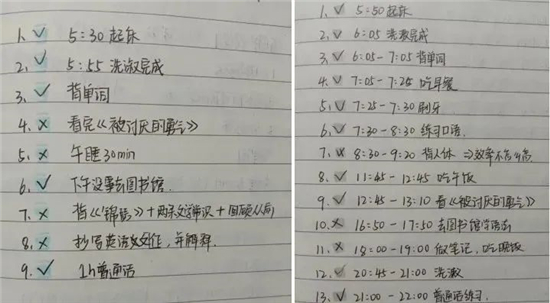 1. ✓ 5:30起床
2. ✓ 5:55 洗漱完成
3. ✓ 背单词
4. × 看完《被讨厌的勇气》
5. × 午睡30min
6. ✓ 下午没事去图书馆.
7. × 背《锦瑟》+两条文学常识+回顾从前
8. × 抄写英语好文作,并翻释.
9. ✓ 1h普通话
1. ✓ 5:50起床
2. ✓ 6:05 洗漱完成
3. ✓ 6:05-7:05 背单词
4. ✓ 7:05-7:25 吃早餐
5. ✓ 7:25-7:30 刷牙
6. ✓ 7:30-8:30 练习口语.
7. × 8:30-9:20 背人体 ⇒效率不言而高
8. ✓ 11:45-12:45 吃午饭
9. ✓ 12:45-13:10 看《被讨厌的勇气》
10. × 16:50-17:50 去图书馆
11. × 18:00-19:00 做笔记,吃晚饭
12. ✓ 20:45-21:00 洗漱
13. ✓ 21:00-22:00 普通话练习.